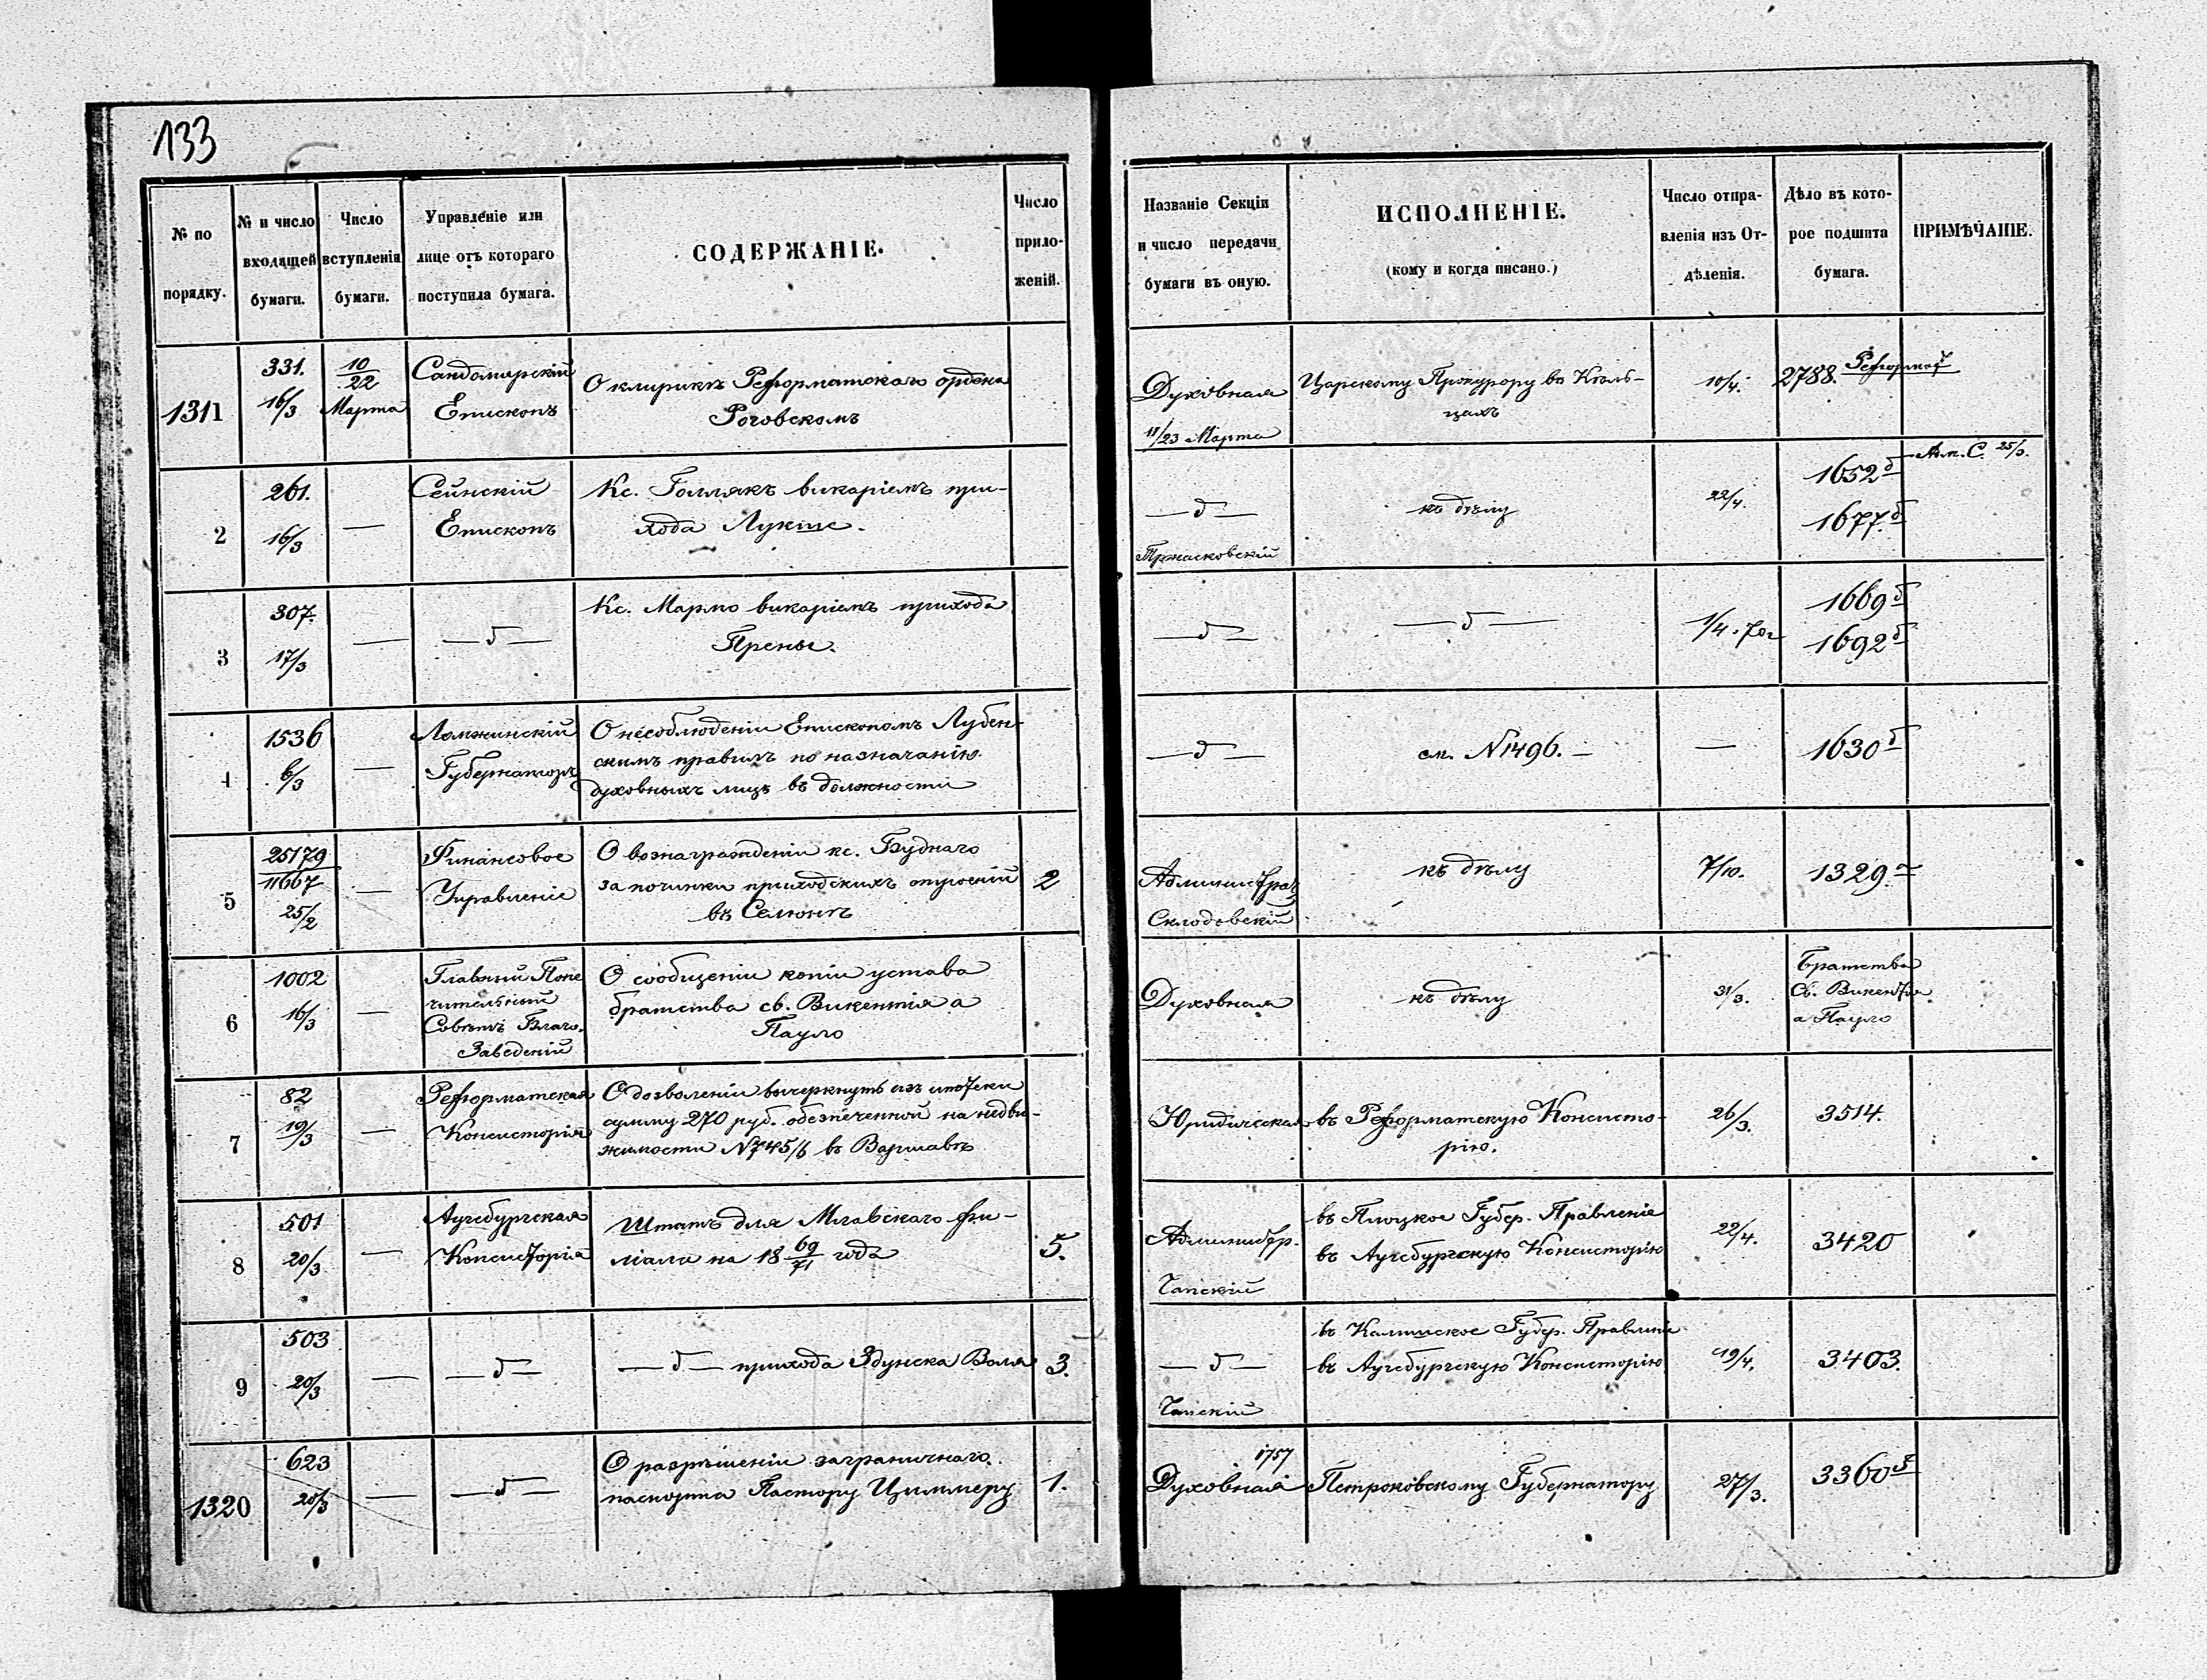 133
№ по порядку.
№ и число входящей бумаги.
Число вступленія бумаги.
Управленіе или лице отъ котораго поступила бумага.
СОДЕРЖАНІЕ.
Число приложеній.
Названіе Секціи и число передачи бумаги въ оную.
ИСПОЛНЕНІЕ.
(кому и когда писано.)
Число отправленія изъ Отдѣленія.
Дѣло въ которое подшита бумага.
ПРИМѢЧАНІЕ.
1311
331.
16/3
10/22 Марта
Сандомирскій
Епископъ
О клирикѣ Реформатскаго ордена
Роговскомъ
Духовная
11/23 Марта
Царскому Прокурору въ Кѣль-
цахъ
10/4.
2788.
2
261.
16/3
—
Сейнскій
Епископъ
Кс. Голлякъ викаріемъ при-
хода Лукше.
— д —
къ дѣлу
22/4.
1652 д
1677 д
25/3.
3
307.
17/3
—
— д —
Кс. Марто викаріемъ прихода
Прены.
— д —
— д —
1/4
1669 д
1692 д
4
1536
6/3
—
Ломжинскій
Губернаторъ
О несоблюденіи Епископомъ Лубен-
скимъ правилъ по назначенію
духовныхъ лицъ въ должности
— д —
см. N 1496. —
—
1630 д
5
25179
11667
25/2
—
Финансовое
Управленіе
О вознагражденіи кс. Буднаго
за починки приходскихъ строеній
въ Селюнѣ
2
Администрат.
Склодовскій
къ дѣлу
7/10.
1329
6
1002
16/3
—
Главный Попе
чительный
Совѣтъ Благо.
Заведеній
О сообщеніи копіи устава
братства св. Викентія а
Пауло
Духовная
къ дѣлу
31/3.
Братства
Св. Викентія
а Пауло
7
82
19/3
—
Реформатская
Консисторія
О дозволеніи вычеркнуть изъ ипотеки
сумму 270 руб. обезпеченной на недви-
жимости N 745/6 въ Варшавѣ
Юридическая
въ Реформатскую Консисто-
рію.
26/3.
3514.
8
501
20/3
—
Аугсбургская
Консисторія
Штатъ для Млавскаго фи-
ліала на 18 69/71 года
5.
Администр.
Чапскій
въ Плоцкое Губер. Правленіе
въ Аугсбургскую Консисторію
22/4.
3420
9
503
20/3
—
— д —
— д — прихода Здунска Воля
3.
— д —
Чапскій
въ Калишское Губер. Правленіе
въ Аугсбургскую Консисторію
19/4.
3403.
1320
623
20/3
—
— д —
О разрѣшеніи заграничнаго
паспорта Пастору Циммеру
1.
1757
Духовная
Петроковскому Губернатору
27/3.
3360